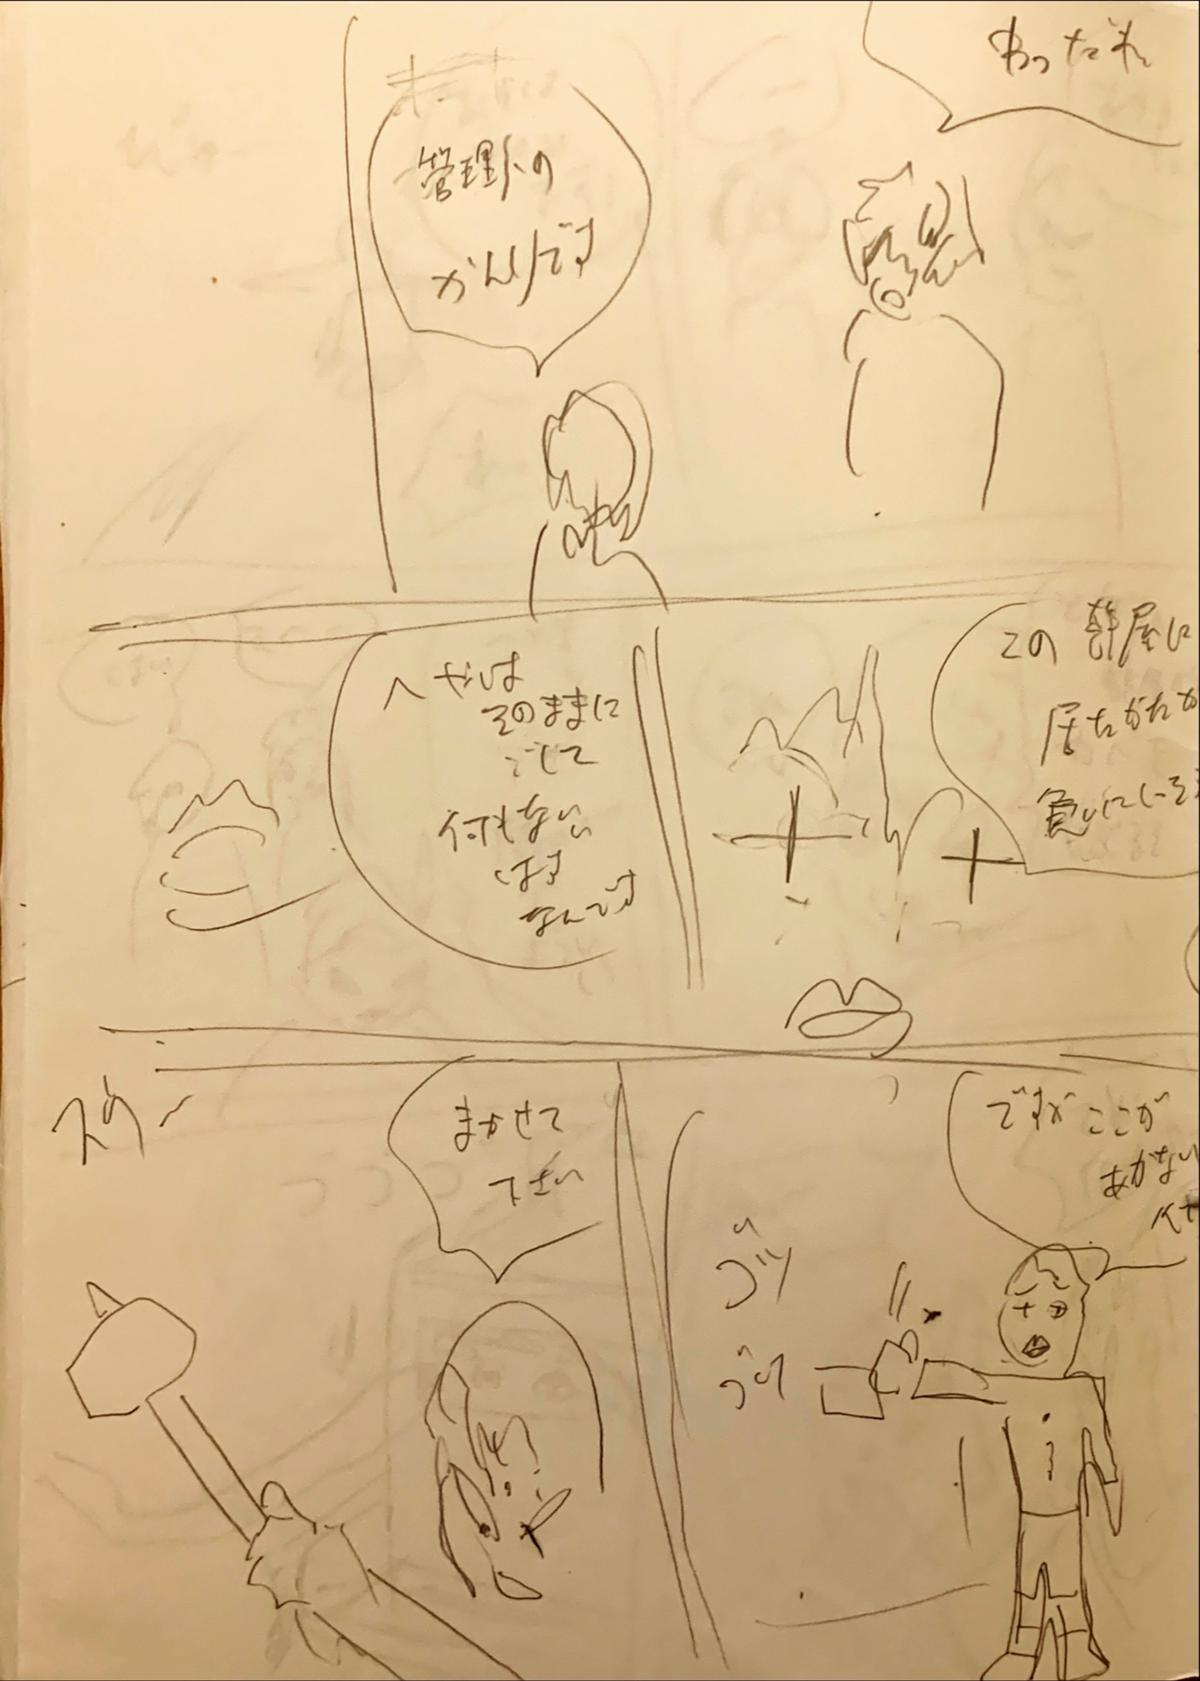 わっだれ
管理人の
かんりです
この部屋に
居たかたが
急にいそ
へやは
そのままに
して
何もない
はず
なんです
ですがここが
あかない
ゴッ
ゴッ
まかせて
下さい
スゥー